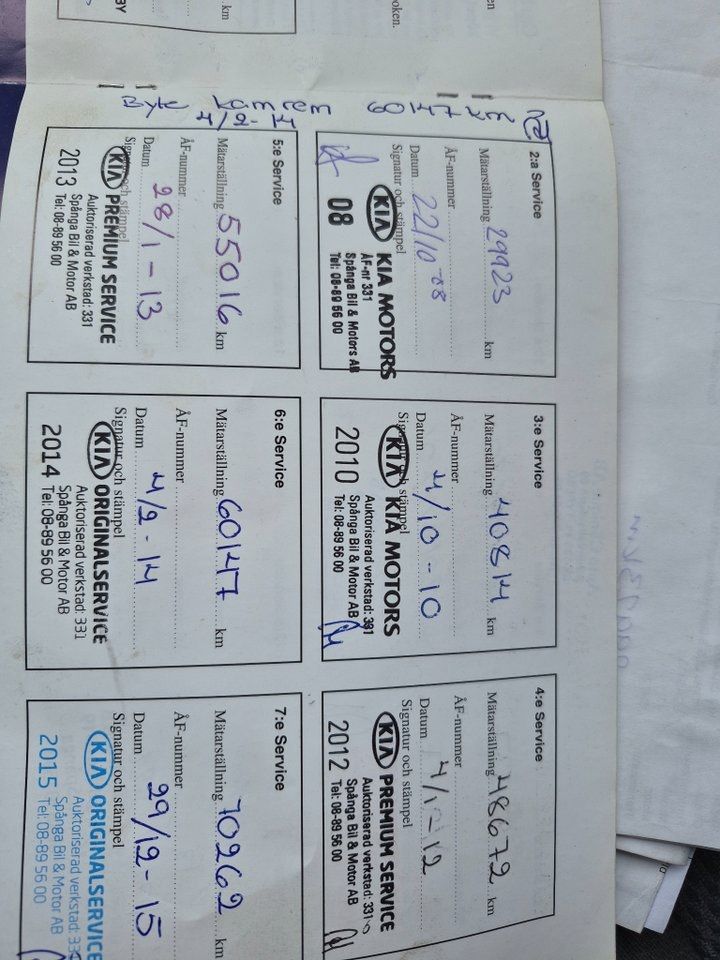 BY
km
en
oken.
Byte kamrem 60147 km
4/2-14
2:a Service
Mätarställning 29923 km
ÅF-nummer
Datum 22/10-08
Signatur och stämpel
KIA KIA MOTORS
08 ÅF-nr 331
Spånga Bil & Motors AB
Tel: 08-89 56 00
3:e Service
Mätarställning 40814 km
ÅF-nummer
Datum 4/10-10
Signatur och stämpel
KIA KIA MOTORS
Auktoriserad verkstad: 331
2010 Spånga Bil & Motor AB
Tel: 08-89 56 00
4:e Service
Mätarställning 48672 km
ÅF-nummer
Datum 4/1-12
Signatur och stämpel
KIA PREMIUM SERVICE
Auktoriserad verkstad: 331
2012 Spånga Bil & Motor AB
Tel: 08-89 56 00
5:e Service
Mätarställning 55016 km
ÅF-nummer
Datum 28/1-13
Signatur och stämpel
KIA PREMIUM SERVICE
Auktoriserad verkstad: 331
2013 Spånga Bil & Motor AB
Tel: 08-89 56 00
6:e Service
Mätarställning 60147 km
ÅF-nummer
Datum 4/2-14
Signatur och stämpel
KIA ORIGINALSERVICE
Auktoriserad verkstad: 331
2014 Spånga Bil & Motor AB
Tel: 08-89 56 00
7:e Service
Mätarställning 70262 km
ÅF-nummer
Datum 29/12-15
Signatur och stämpel
KIA ORIGINALSERVICE
Auktoriserad verkstad: 331
2015 Spånga Bil & Motor AB
Tel: 08-89 56 00